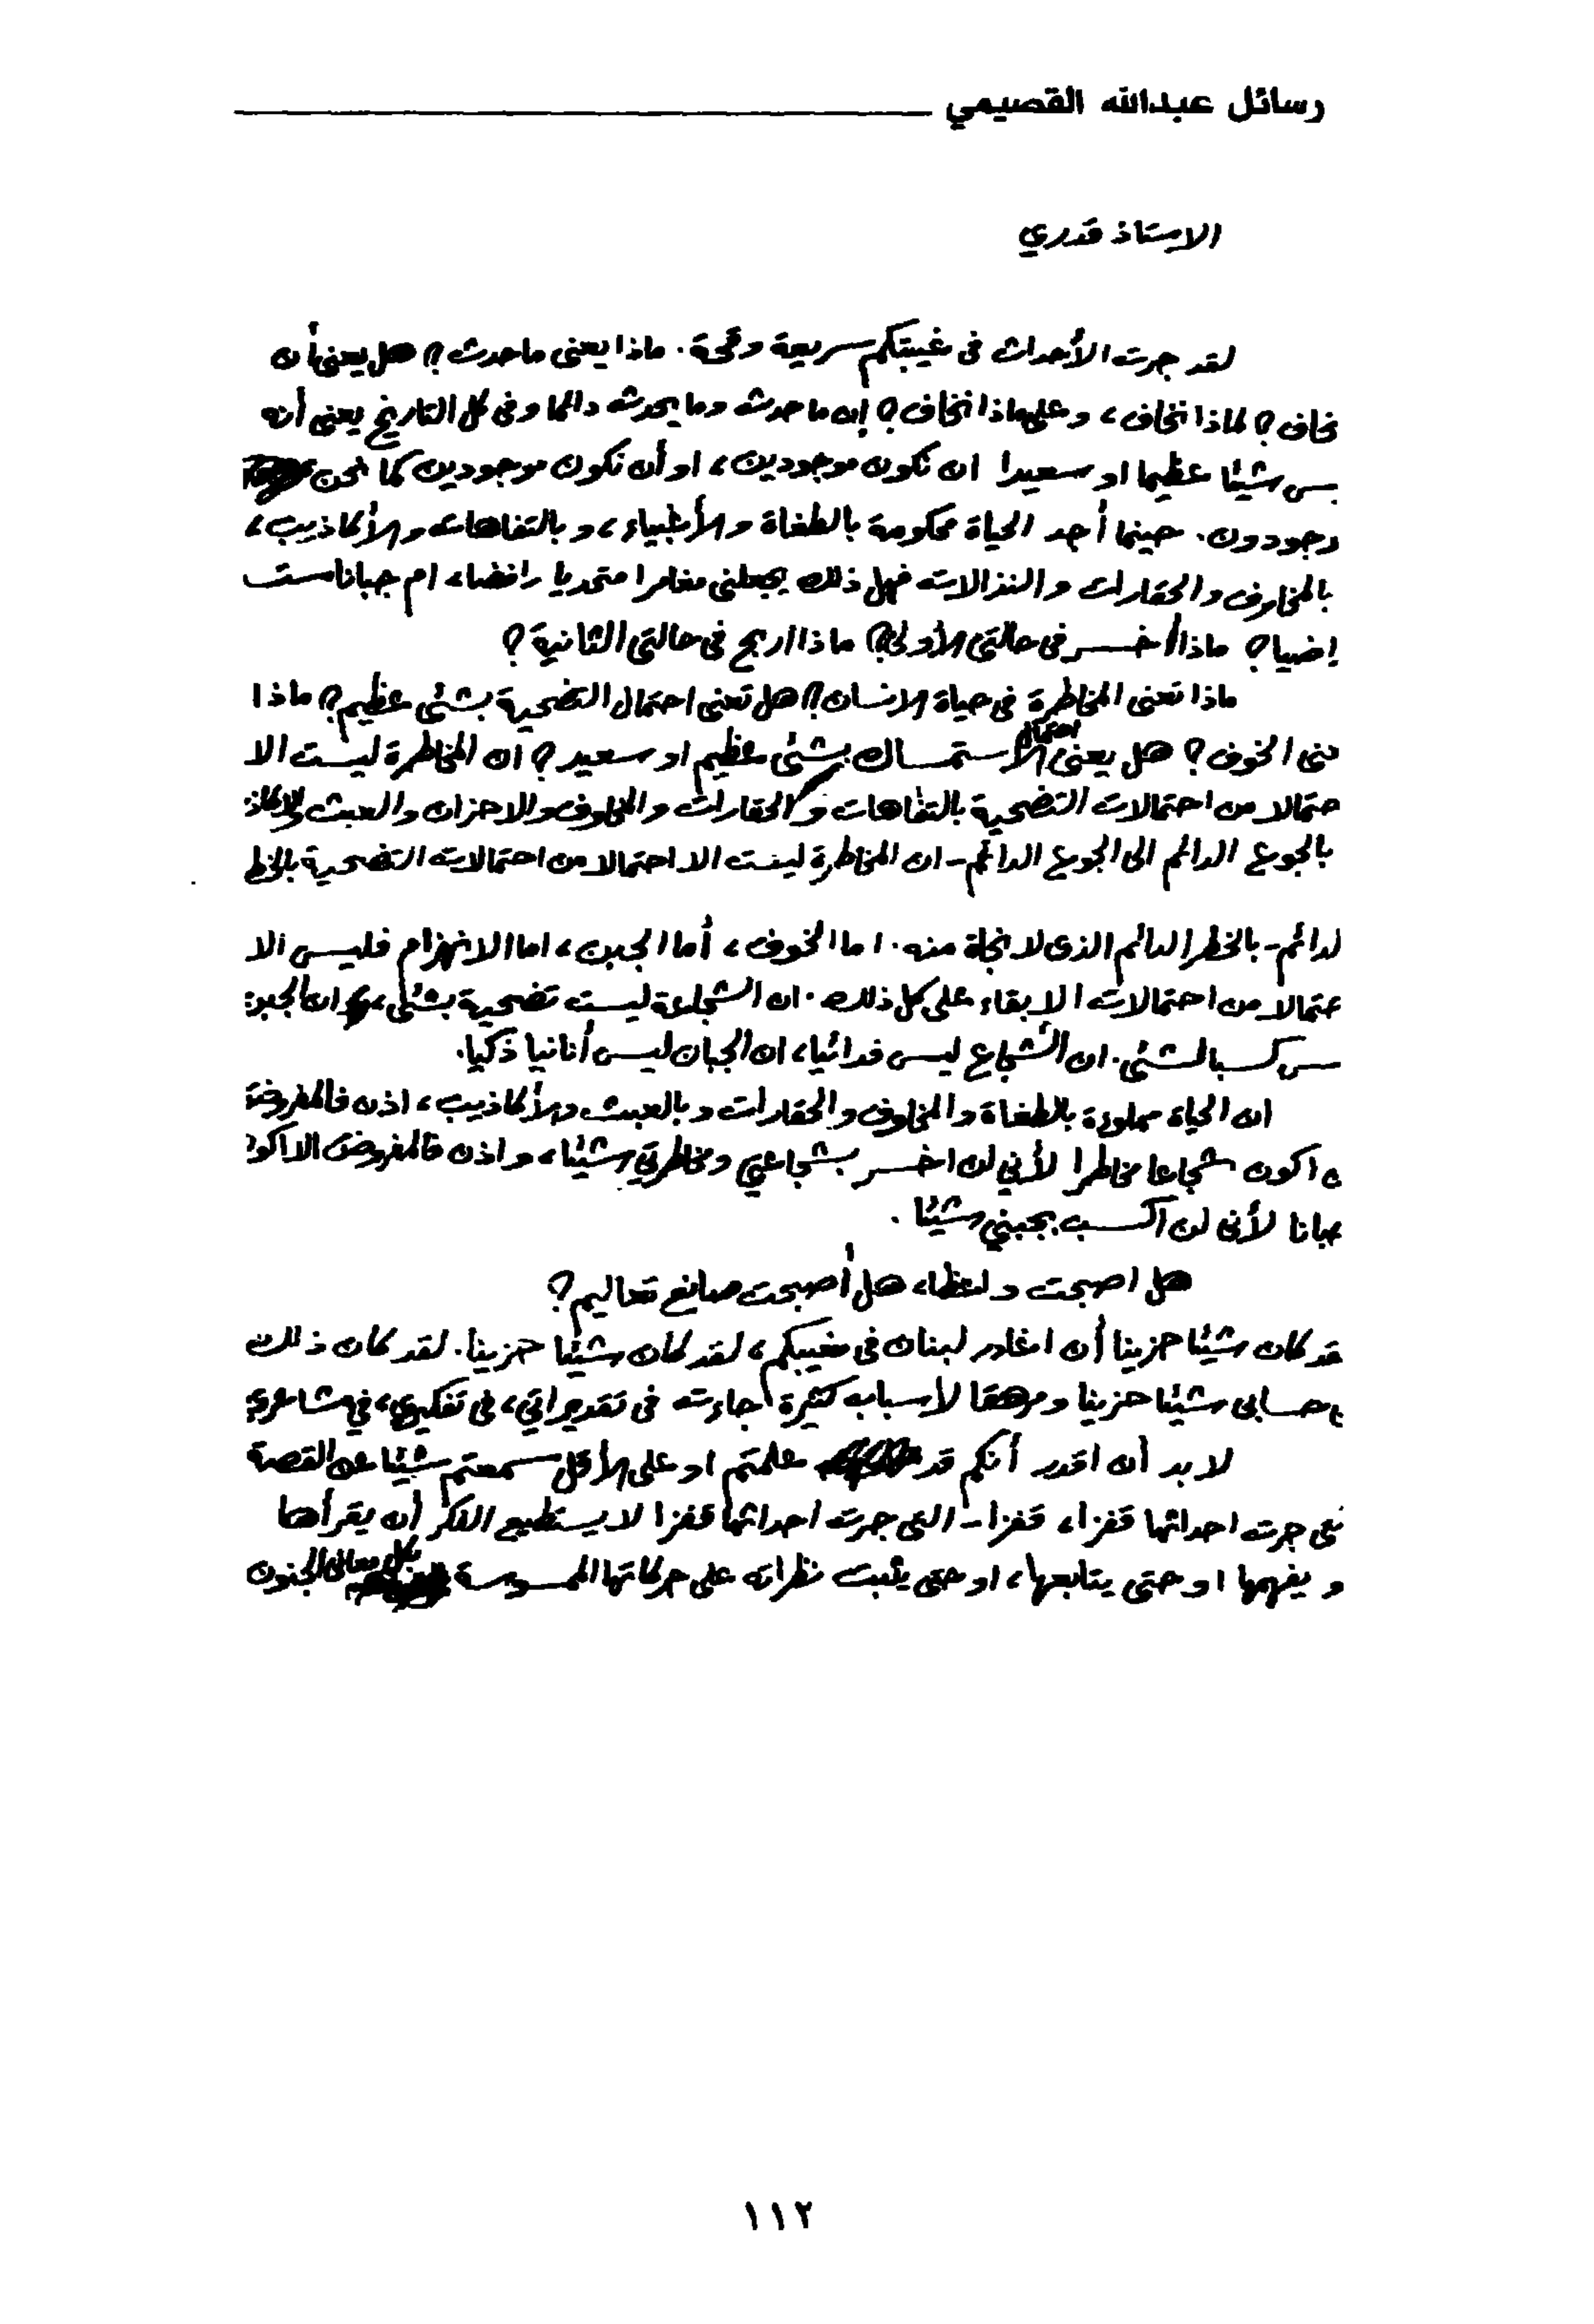 رسائل عبدالله القصيمي
الاستاذ قدري
لقد جرت الأحداث في غيبتكم سريعة وقحة. ماذا يعنى ما حدث؟ هل يعنى أن
نخاف؟ لماذا نخاف، وعلى ماذا نخاف؟ إن ما حدث وما يحدث دائما وفى كل التاريخ يعنى أنه
يس شيئا عظيما او سعيدا ان نكون موجودين، او أن نكون موجودين كما نحن
وجودون. حينما أجد الحياة محكومة بالطغاة والأغبياء، وبالتفاهات والأكاذيب،
بالمخاوف والحقارات والنذالات فهل ذلك يجعلنى مغامرا متحديا رافضا، ام جبانا مست
اضيا؟ ماذا أخسر فى حالتى الأولى؟ ماذا اربح فى حالتى الثانية؟
ماذا تعنى المخاطرة فى حياة الانسان؟ هل تعنى احتمال التضحية بشئ عظيم؟ ماذا
عنى الخوف؟ هل يعنى احتمال الاستمساك بشئ عظيم او سعيد؟ ان المخاطرة ليست الا
حتمالا من احتمالات التضحية بالتفاهات والحقارات والمخاوف والاحزان والعبث والاكاذ
بالجوع الدائم الى الجوع الدائم - ان المخاطرة ليست الا احتمالا من احتمالات التضحية بالخط
لدائم - بالخطر الدائم الذى لا نجاة منه. اما الخوف، أما الجبن، اما الانهزام فليس الا
حتمالا من احتمالات الابقاء على كل ذلك. ان الشجاعة ليست تضحية بشئ، ان الجبن
يس كسبا لشئ. ان الشجاع ليس فدائيا، ان الجبان ليس أنانيا ذكيا.
ان الحياة مملوءة بالطغاة والمخاوف والحقارات وبالعبث والأكاذيب، اذن فالمفروض
ن اكون شجاعا مخاطرا لأني لن اخسر بشجاعتي ومخاطرتي شيئا، واذن فالمفروض الا اكو
جبانا لأنى لن اكسب بجبني شيئا.
هل اصبحت واعظا، هل أصبحت صانع تعاليم؟
قد كان شيئا حزينا أن اغادر لبنان فى مغيبكم، لقد كان شيئا حزينا. لقد كان ذلك
حسابى شيئا حزينا ومرهقا لأسباب كثيرة جاءت فى تقديراتي، فى تفكيري، في مشاعري
لا بد أن اقدر أنكم قد علمتم او على الأقل سمعتم شيئا عن القصة
تى جرت احداثها قفزا، قفزا - التى جرت احداثها قفزا لا يستطيع الفكر أن يقرأها
و يفهمها او حتى يتابعها، او حتى يثبت نظراته على حركاتها الملموسة بكل معانى الجنون
١١٢